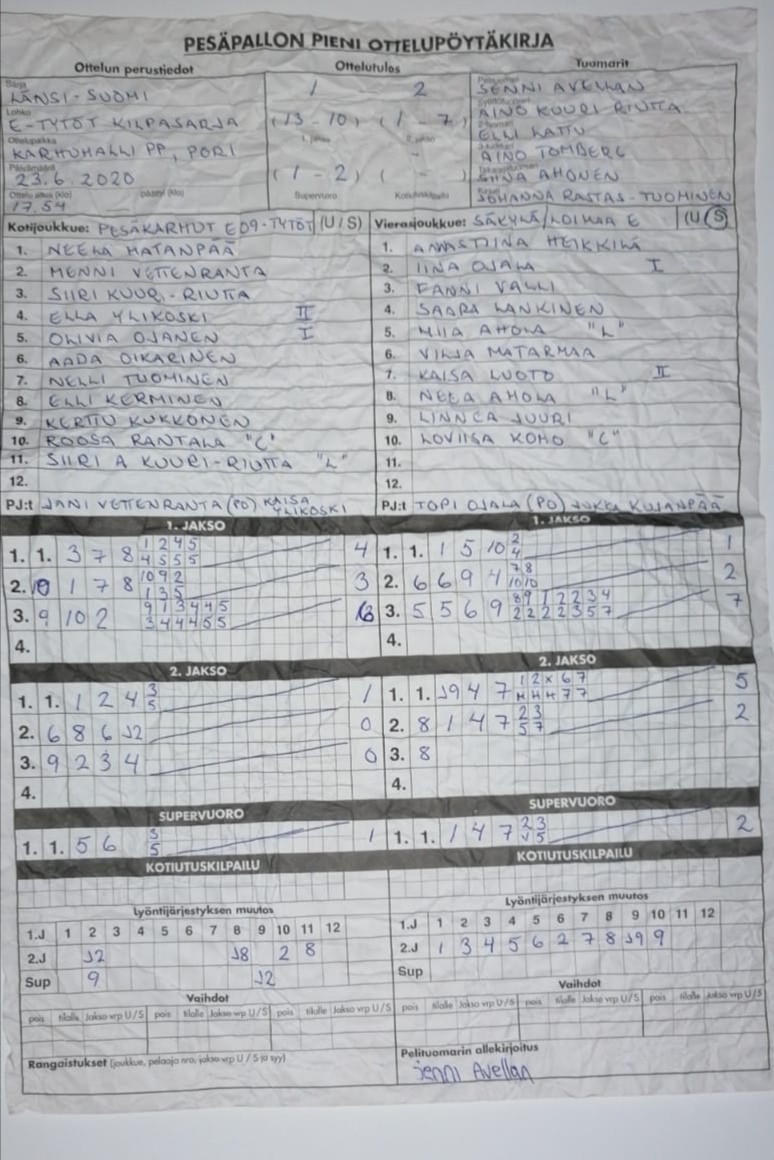 PESÄPALLON PIENI OTTELUPÖYTÄKIRJA
Ottelun perustiedot
Sarja
LÄNSI-SUOMI
Lohko
E-TYTÖT KILPASARJA
Ottelupaikka
KARHUHALLI PP, PORI
Päivämäärä
23.6.2020
Ottelu alkoi (klo) päättyi (klo)
17.54
Ottelutulos
1 2
(13-10) (1-7)
1. jakso 2. jakso
(1-2) ( - )
Supervuoro Kotiutuskilpailu
Tuomarit
Pelituomari
JENNI AVELLAN
Syöttötuomari
AINO KUURI-RIUTTA
2-tuomari
ELLI LATTU
3-tuomari
AINO TOMBERG
Takarajatuomari
SIINA AHONEN
Kirjuri
JOHANNA RASTAS-TUOMINEN
Kotijoukkue: PESÄKARHUT E09-TYTÖT (U/S)
1. NEELA HATANPÄÄ
2. MENNI VETTENRANTA
3. SIIRI KUURI-RIUTTA
4. ELLA YLIKOSKI II
5. OLIVIA OJANEN I
6. AADA OIKARINEN
7. NELLI TUOMINEN
8. ELLI KERMINEN
9. KERTTU KUKKONEN
10. ROOSA RANTALA "C"
11. SIIRI A KUURI-RIUTTA "L"
12.
PJ:t JANI VETTENRANTA (PO) KAISA YLIKOSKI
Vierasjoukkue: SÄKYLÄ/LOIMAA E (U/S)
1. ANASTIINA HEIKKILÄ
2. IINA OJALA I
3. FANNI VALLI
4. SAARA LANKINEN
5. MIIA AHOLA "L"
6. VILJA MATARMAA
7. KAISA LUOTO II
8. NEEA AHOLA "L"
9. LINNEA JUURI
10. LOVIISA KOHO "C"
11.
12.
PJ:t TOPI OJALA (PO) JUKKA KUJANPÄÄ
1. JAKSO
1. 1. 3 7 8 1 2 4 5 4
4 5 5 5
2. 10 1 7 8 10 9 2 3
1 3 5
3. 9 10 2 9 1 3 4 4 5 6
3 4 4 4 5 5
4.
1. JAKSO
1. 1. 1 5 10 2 1
4
2. 6 6 9 4 7 8 2
10 10
3. 5 5 6 9 8 9 1 2 2 3 4 7
2 2 2 2 3 5 7
4.
2. JAKSO
1. 1. 1 2 4 3 1
5
2. 6 8 6 J2 0
3. 9 2 3 4 0
4.
2. JAKSO
1. 1. J9 4 7 1 2 x 6 7 5
H H H 7 7
2. 8 1 4 7 2 3 2
5 7
3. 8
4.
SUPERVUORO
1. 1. 5 6 3 1
5
SUPERVUORO
1. 1. 1 4 7 2 3 2
V 5
KOTIUTUSKILPAILU
KOTIUTUSKILPAILU
Lyöntijärjestyksen muutos
1.J 1 2 3 4 5 6 7 8 9 10 11 12
2.J J2 J8 2 8
Sup 9 J2
Lyöntijärjestyksen muutos
1.J 1 2 3 4 5 6 7 8 9 10 11 12
2.J 1 3 4 5 6 2 7 8 J9 9
Sup
Vaihdot
pois tilalle Jakso vrp U/S pois tilalle Jakso vrp U/S pois tilalle Jakso vrp U/S
Vaihdot
pois tilalle Jakso vrp U/S pois tilalle Jakso vrp U/S pois tilalle Jakso vrp U/S
Rangaistukset (joukkue, pelaaja nro, jakso vrp U / S ja syy)
Pelituomarin allekirjoitus
Jenni Avellan